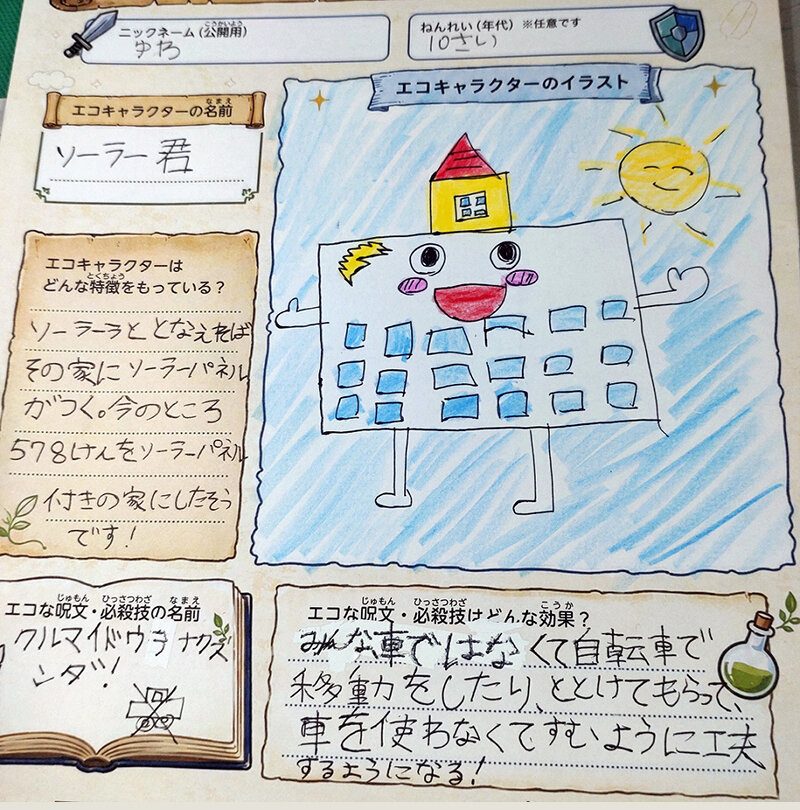 ニックネーム（公開用）
こうかいよう
ゆわ
ねんれい（年代）※任意です
10さい
エコキャラクターの名前
なまえ
ソーラー君
エコキャラクターのイラスト
エコキャラクターは
どんな特徴をもっている？
とくちょう
ソーラーラと となえれば
その家にソーラーパネル
がつく。今のところ
578けんをソーラーパネル
付きの家にしたそう
です！
エコな呪文・必殺技の名前
じゅもん ひっさつわざ なまえ
クルマイドウヲナクス
ンダ！
エコな呪文・必殺技はどんな効果？
じゅもん ひっさつわざ こうか
みんな車ではなくて自転車で
移動をしたり、ととけてもらって、
車を使わなくてすむように工夫
するようになる！